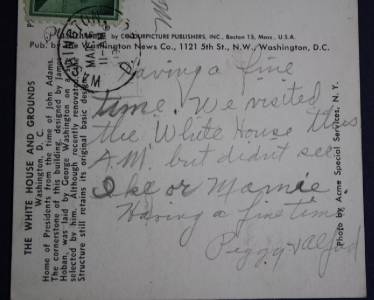 by COLOURPICTURE PUBLISHERS, INC., Boston 15, Mass., U.S.A.
Pub. by The Washington News Co., 1121 5th St., N.W., Washington, D.C.
Having a fine
time. We visited
the White house this
A.M. but didn't see
Ike or Mamie
Having a fine time
Peggy
THE WHITE HOUSE AND GROUNDS
Washington, D. C.
Home of Presidents from the time of John Adams.
The cornerstone of this building, designed by James
Hoban, was laid by George Washington on
selected by him. Although recently renovated
Structure still retains its original basic design
Photo by Acme Special Services, N. Y.
MAR
11